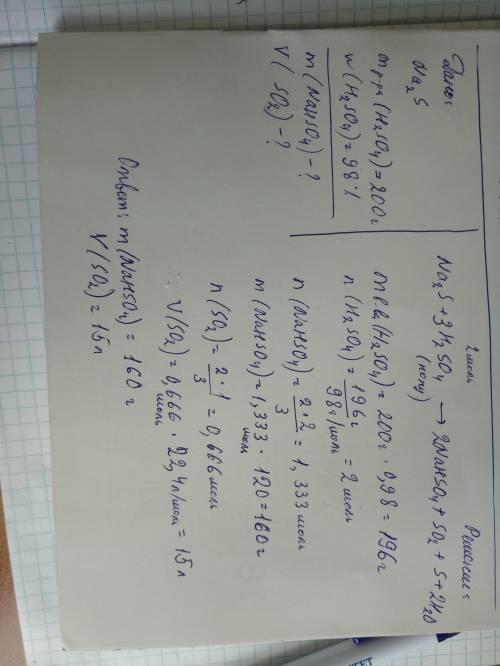 Дано:
Na₂S
m р-ра (H₂SO₄) = 200г
w (H₂SO₄) = 98%
m (NaHSO₄) - ?
V ( SO₂) - ?
Решение:
2 моль
Na₂S + 3H₂SO₄ → 2NaHSO₄ + SO₂ + S + 2H₂O
(конц)
m в-ва (H₂SO₄) = 200г · 0,98 = 196г
n (H₂SO₄) = 196г / 98г/моль = 2 моль
n (NaHSO₄) = 2·2 / 3 = 1,333 моль
m (NaHSO₄) = 1,333 моль · 120 = 160г
n (SO₂) = 2·1 / 3 = 0,666 моль
V(SO₂) = 0,666 моль · 22,4 л/моль = 15 л
Ответ: m (NaHSO₄) = 160 г
V(SO₂) = 15 л
ТЕТ